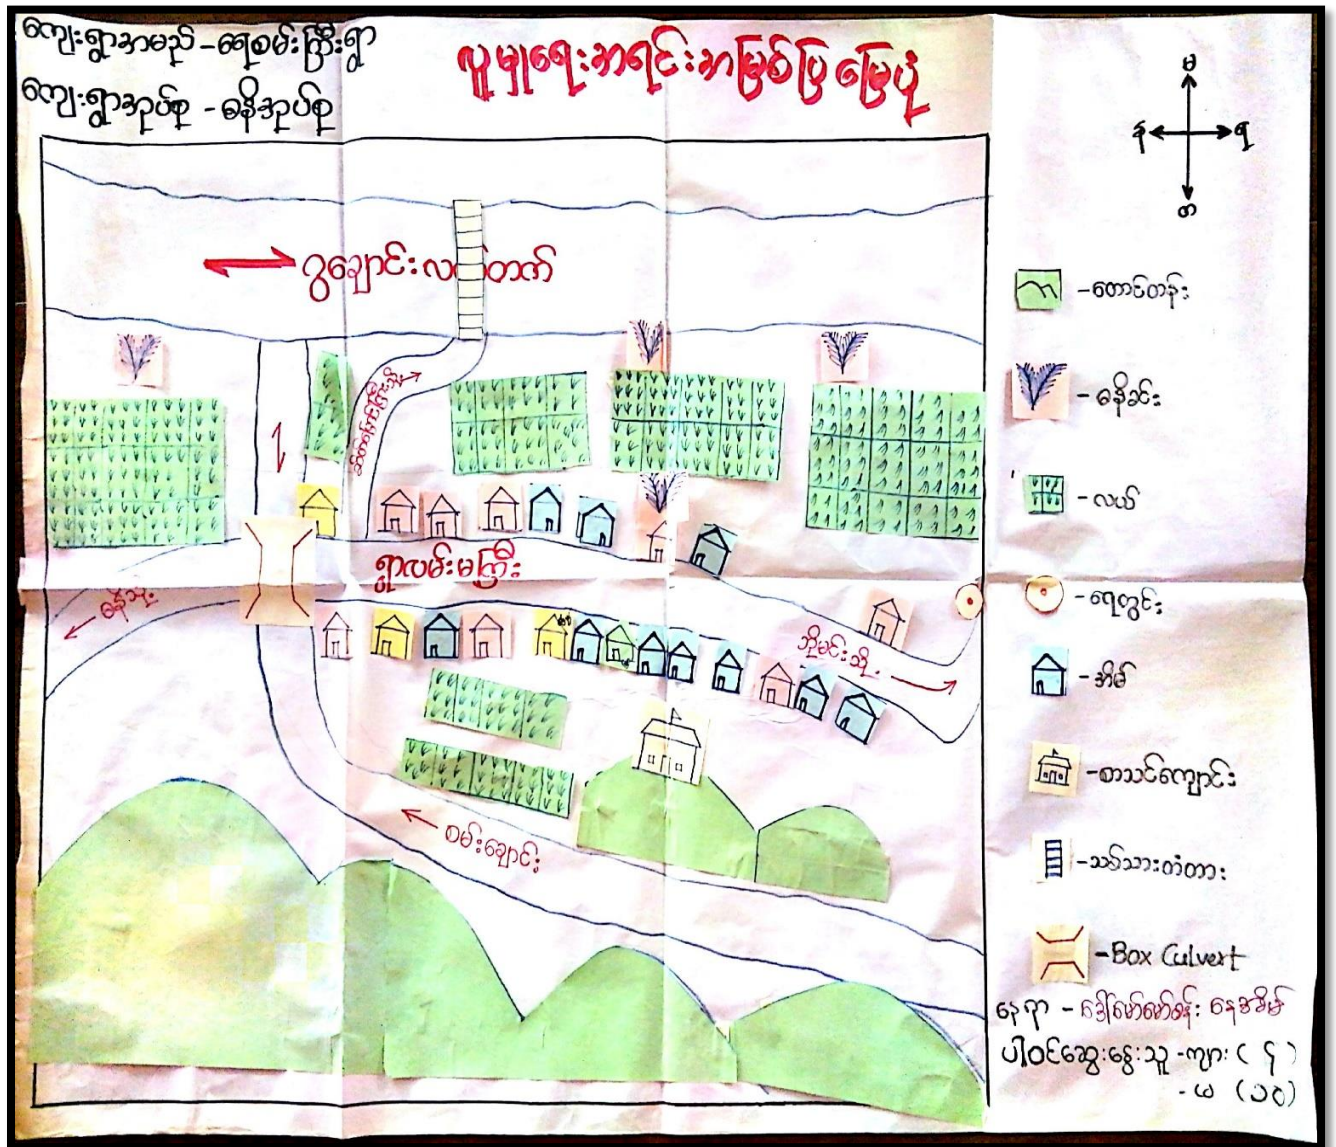 ကျေးရွာအမည် - ရေစမ်းကြီးရွာ
ကျေးရွာအုပ်စု - ဓနိအုပ်စု
လူမှုရေးအရင်းအမြစ်ပြ မြေပုံ
မ
န
ရ
တ
ဂွချောင်းလက်တက်
ရွာလမ်းမကြီး
ဓနိသို့
ဘိုမင်းသို့
စမ်းချောင်း
- တောင်တန်း
- ဓနိခင်း
- လယ်
- ရေတွင်း
- အိမ်
- စာသင်ကျောင်း
- သစ်သားတံတား
- Box Culvert
နေရာ - ဒေါ်မော်မော်ခန်း နေအိမ်
ပါဝင်ဆွေးနွေးသူ - ကျား ( ၄ )
- မ (၁၀)